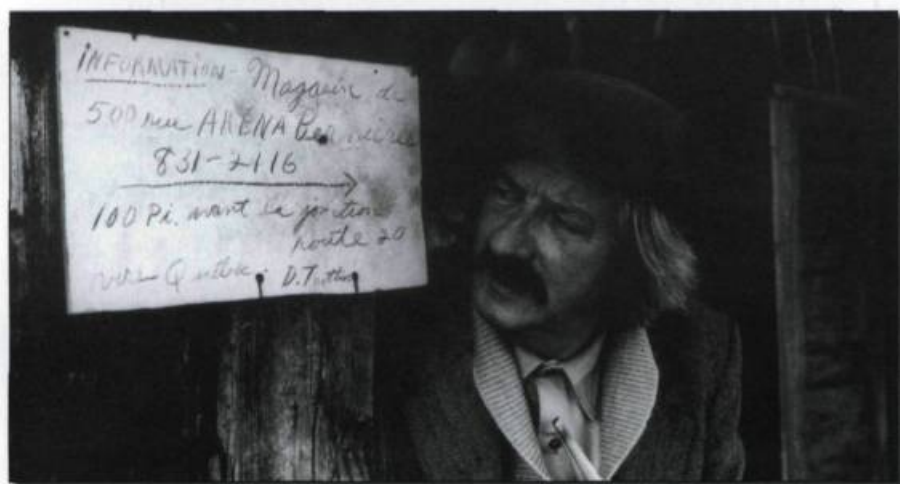 INFORMATION - Magasin de
500 rue ARENA
831-2116
100 Pi. avant la jonction
route 20
D.